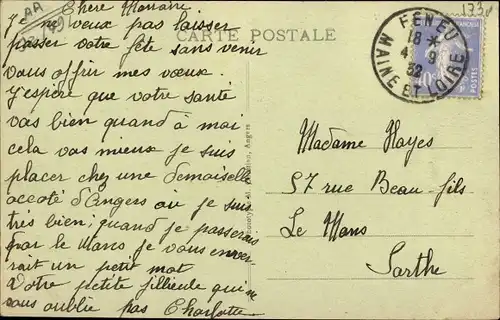 Chère Monaire
je ne veux pas laisser
passer votre fête sans venir
vous offrir mes vœux.
J'yespère que votre santé
vas bien quand à moi
cela vas mieux je suis
placer chez une demoiselle
accoté d'Angers où je suis
très bien; quand je passerais
par le Mans je vous enver
rait un petit mot
Votre petite filleule qui ne
vous oublie pas Charlotte
CARTE POSTALE
FENEU
18 *
4 9
32
MAINE ET LOIRE
POSTES
Angers
Madame Hayes
57 rue Beau-fils
Le Mans
Sarthe